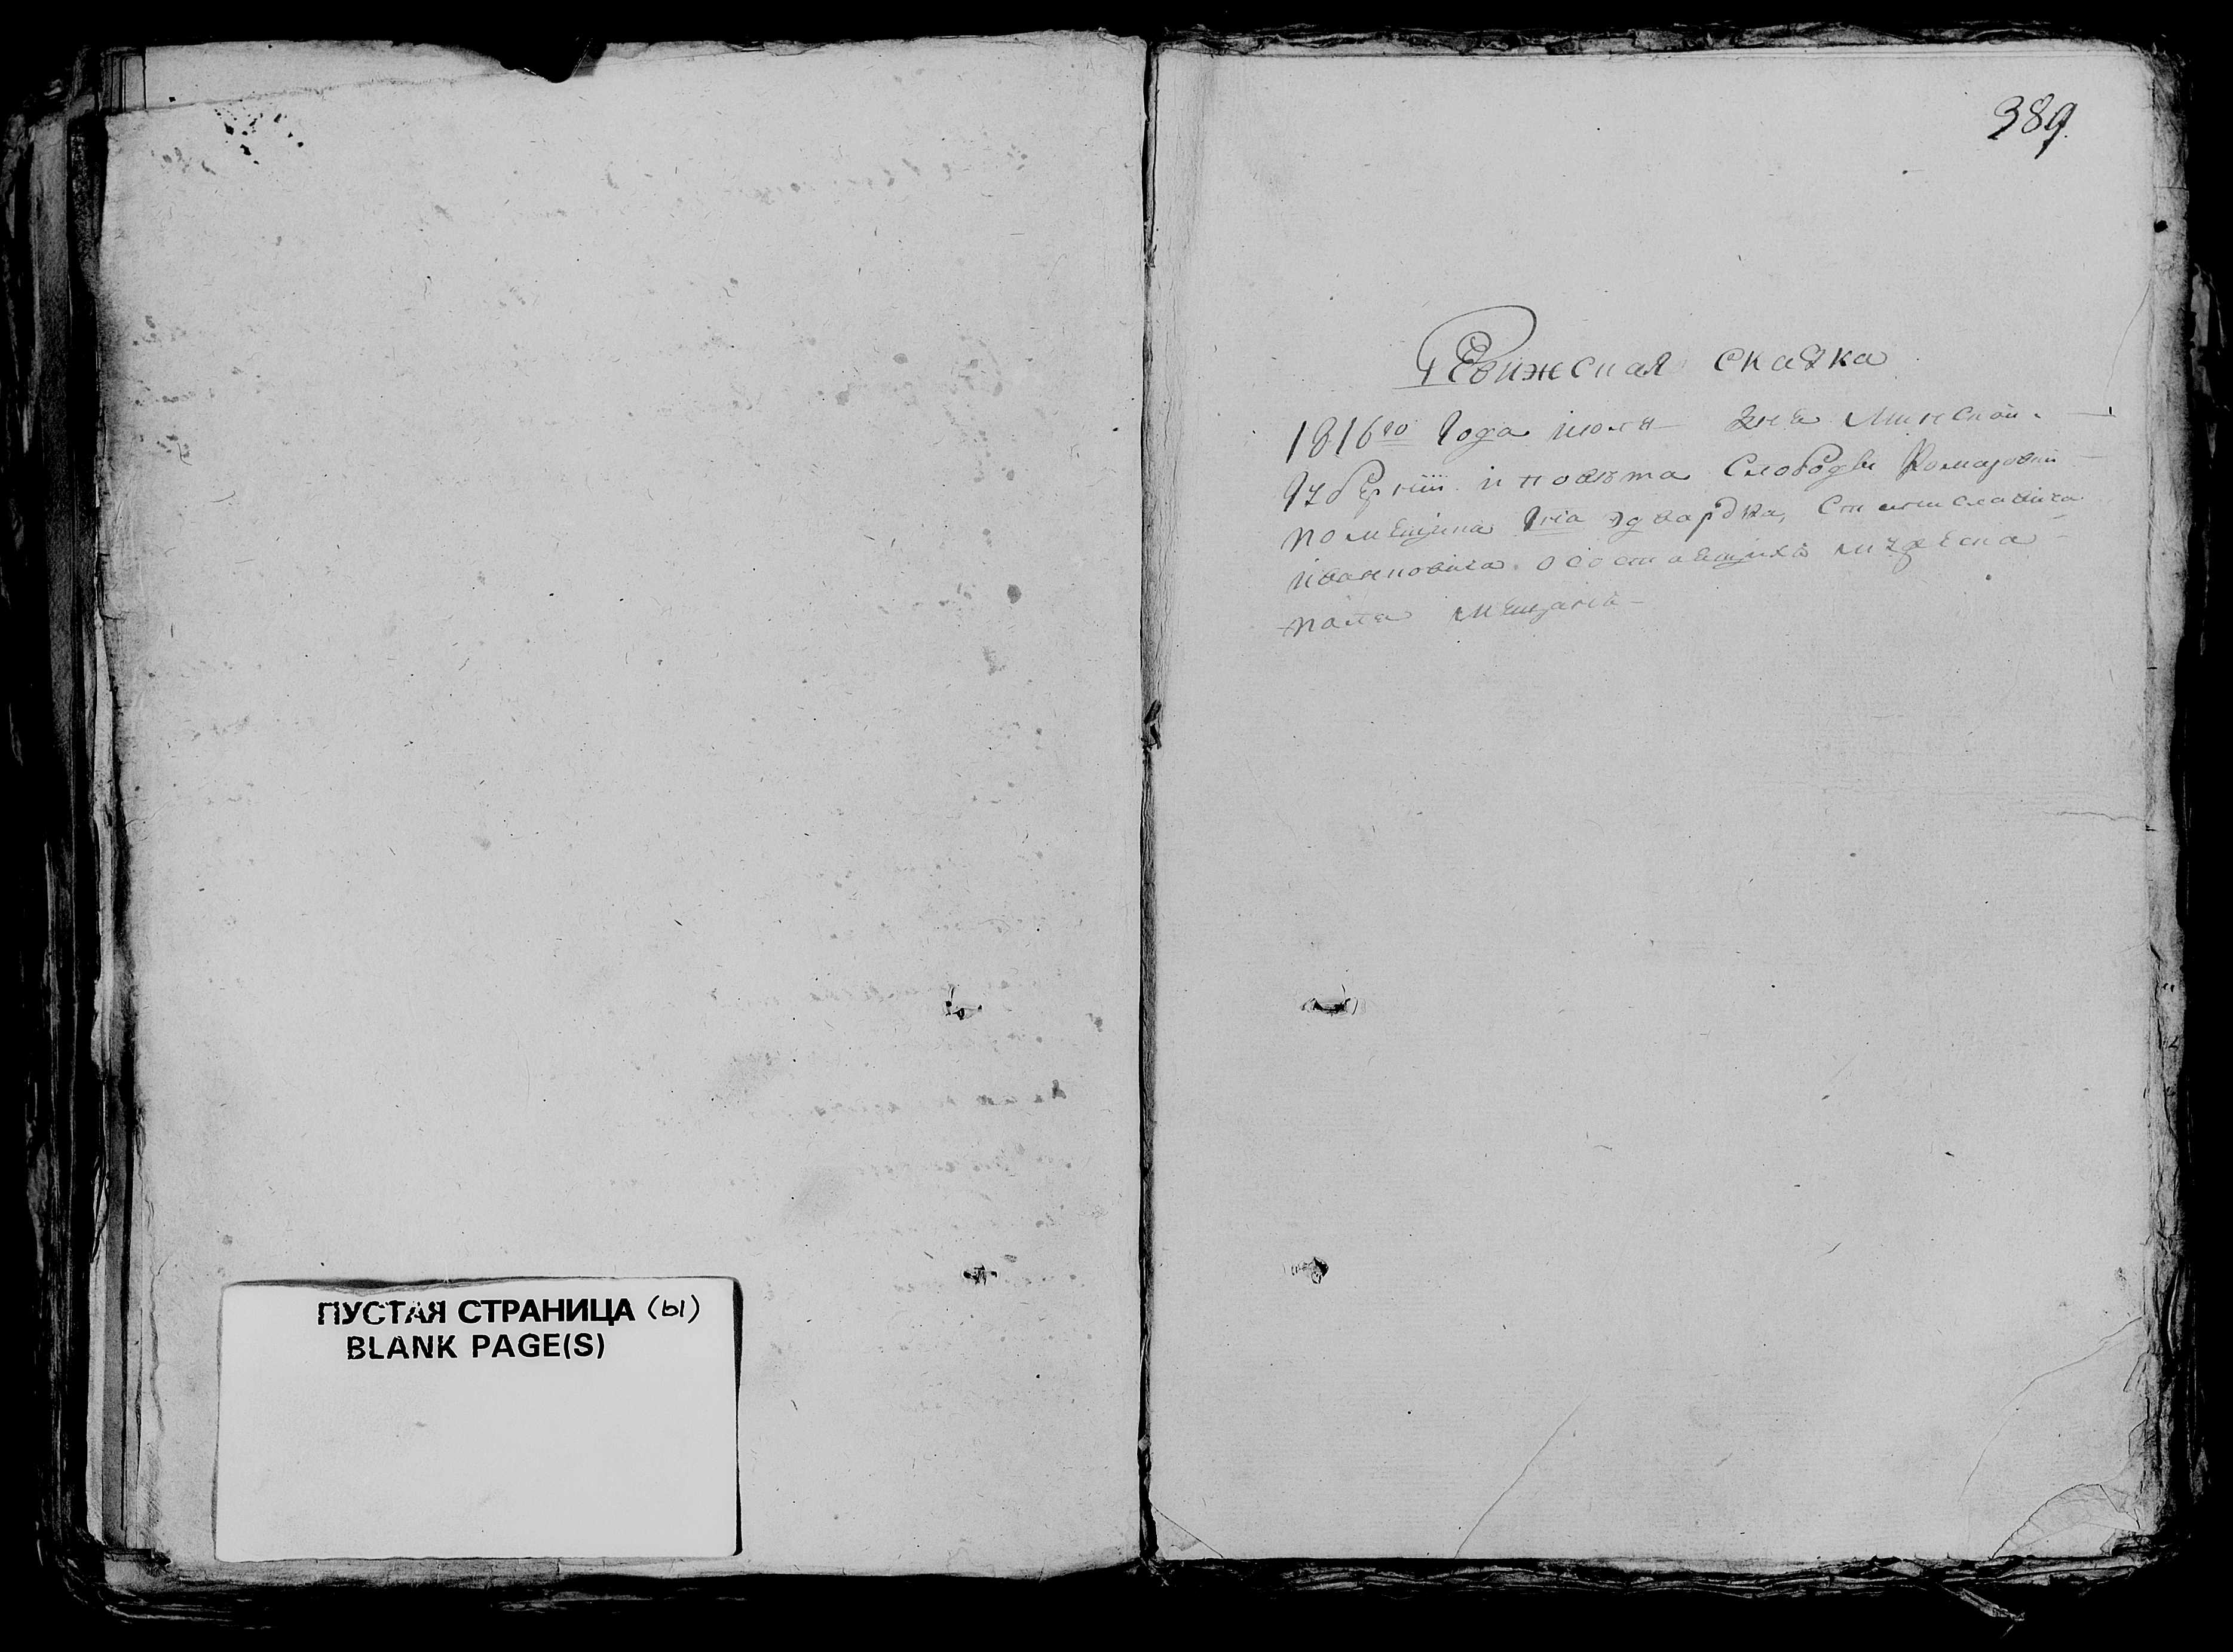 ПУСТАЯ СТРАНИЦА (ы)
BLANK PAGE(S)
389.
Ревижсная сказка
1816го года июля дня Минской
губернии и повета Слободы Комаровки
помещика Гна Эдварда, Станиславича
Ивановича о состоящихъ мужеска
пола мещанъ